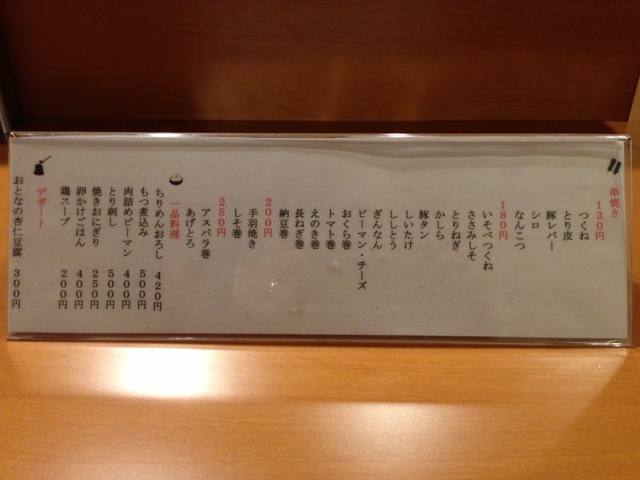 串焼き
130円
つくね
とり皮
豚レバー
シロ
なんこつ
180円
いそべつくね
ささみしそ
とりねぎ
かしら
豚タン
しいたけ
ししとう
ぎんなん
ピーマン・チーズ
おくら巻
トマト巻
えのき巻
長ねぎ巻
納豆巻
200円
手羽焼き
しそ巻
250円
アスパラ巻
あげとろ
一品料理
ちりめんおろし 420円
もつ煮込み 500円
肉詰めピーマン 400円
とり刺し 500円
焼きおにぎり 250円
卵かけごはん 400円
鶏スープ 200円
デザート
おとなの杏仁豆腐 300円